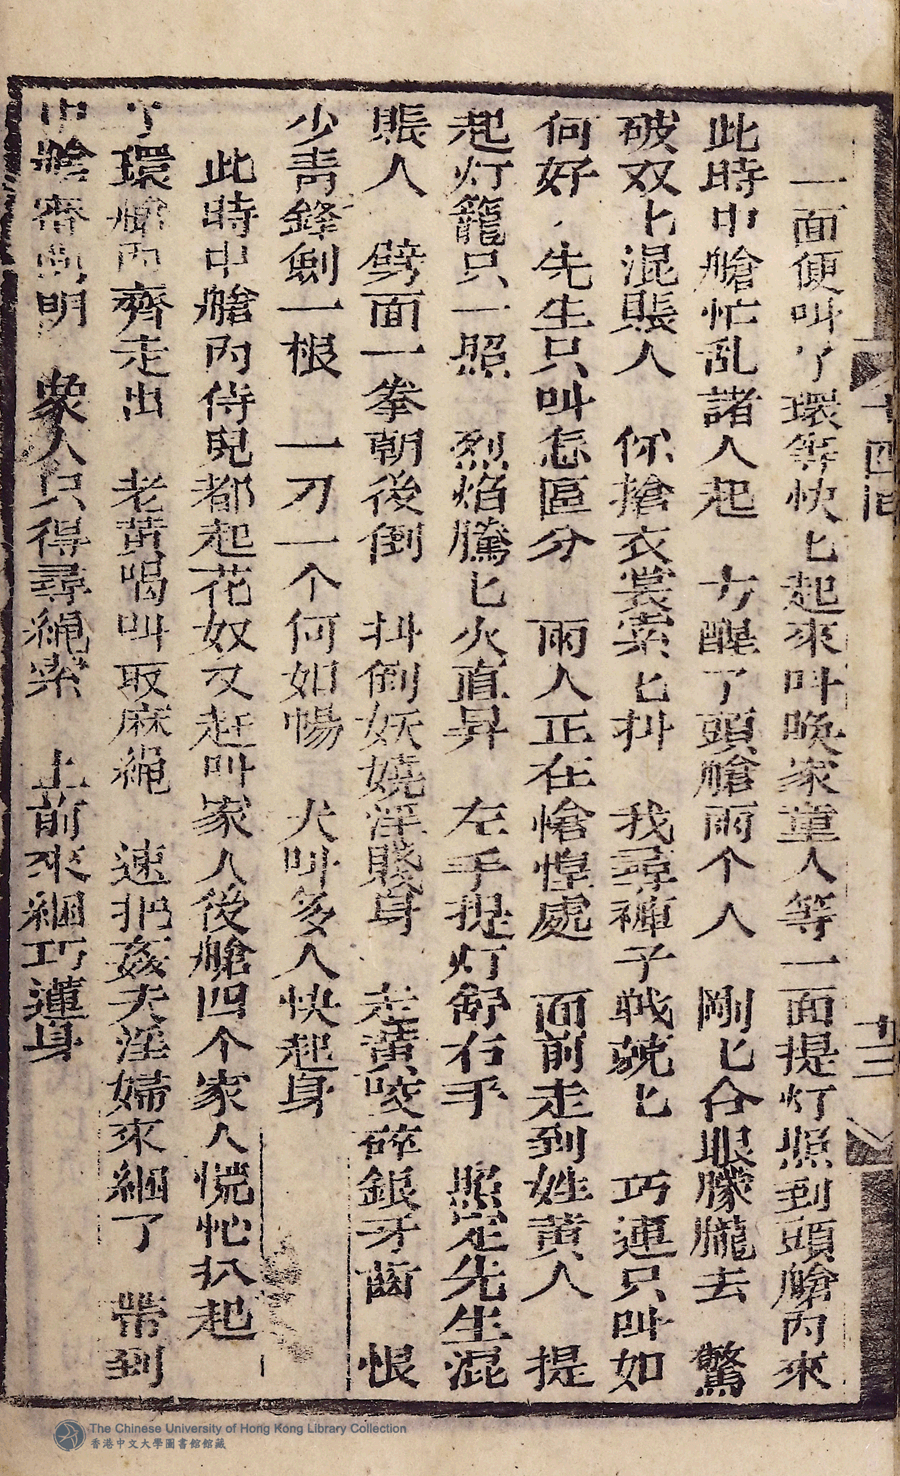 一面便叫丫環等快匕起來叫喚家童人等一面提灯照到頭艙內來
此時中艙忙乱諸人起　方醒了頭艙兩个人　剛匕合眼朦朧去　驚
破双匕混賬人　你搶衣裳索匕抖　我尋褲子戰兢匕　巧連只叫如
何好　先生只叫怎區分　兩人正在愴惶處　面前走到姓黄人　提
起灯籠只一照　烈焰騰匕火直昇　左手提灯舒右手　照定先生混
賬人　劈面一拳朝後倒　抖倒妖嬈淫賤身　走黄咬碎銀牙齒　恨
少青鋒劍一根　一刀一个何如暢　犬叫多人快起身
此時中艙內侍兒都起花奴又赶叫家人後艙四个家人慌忙扒起
丫環艙內齊走出　老黄喝叫取麻繩　速把姦夫淫婦來綑了　帶到
中艙審明　衆人只得尋繩索　上前來綑巧蓮身
十四回
十三
The Chinese University of Hong Kong Library Collection
香港中文大學圖書館館藏